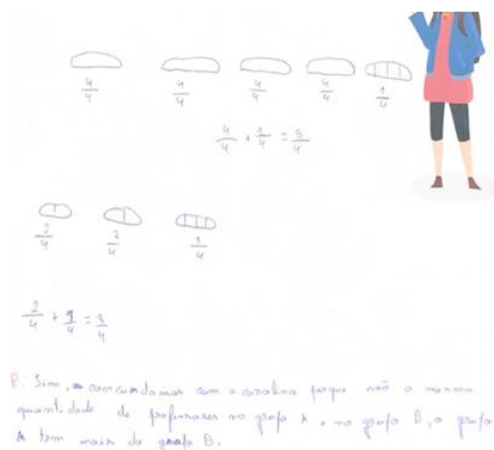 4/4 4/4 4/4 4/4 1/4
4/4 + 1/4 = 5/4
2/4 2/4 1/4
2/4 + 1/4 = 3/4
R: Sim, concordamos com a carolina porque não a mesma
quantidade de professores no grupo A e no grupo B, o grupo
A tem mais do grupo B.